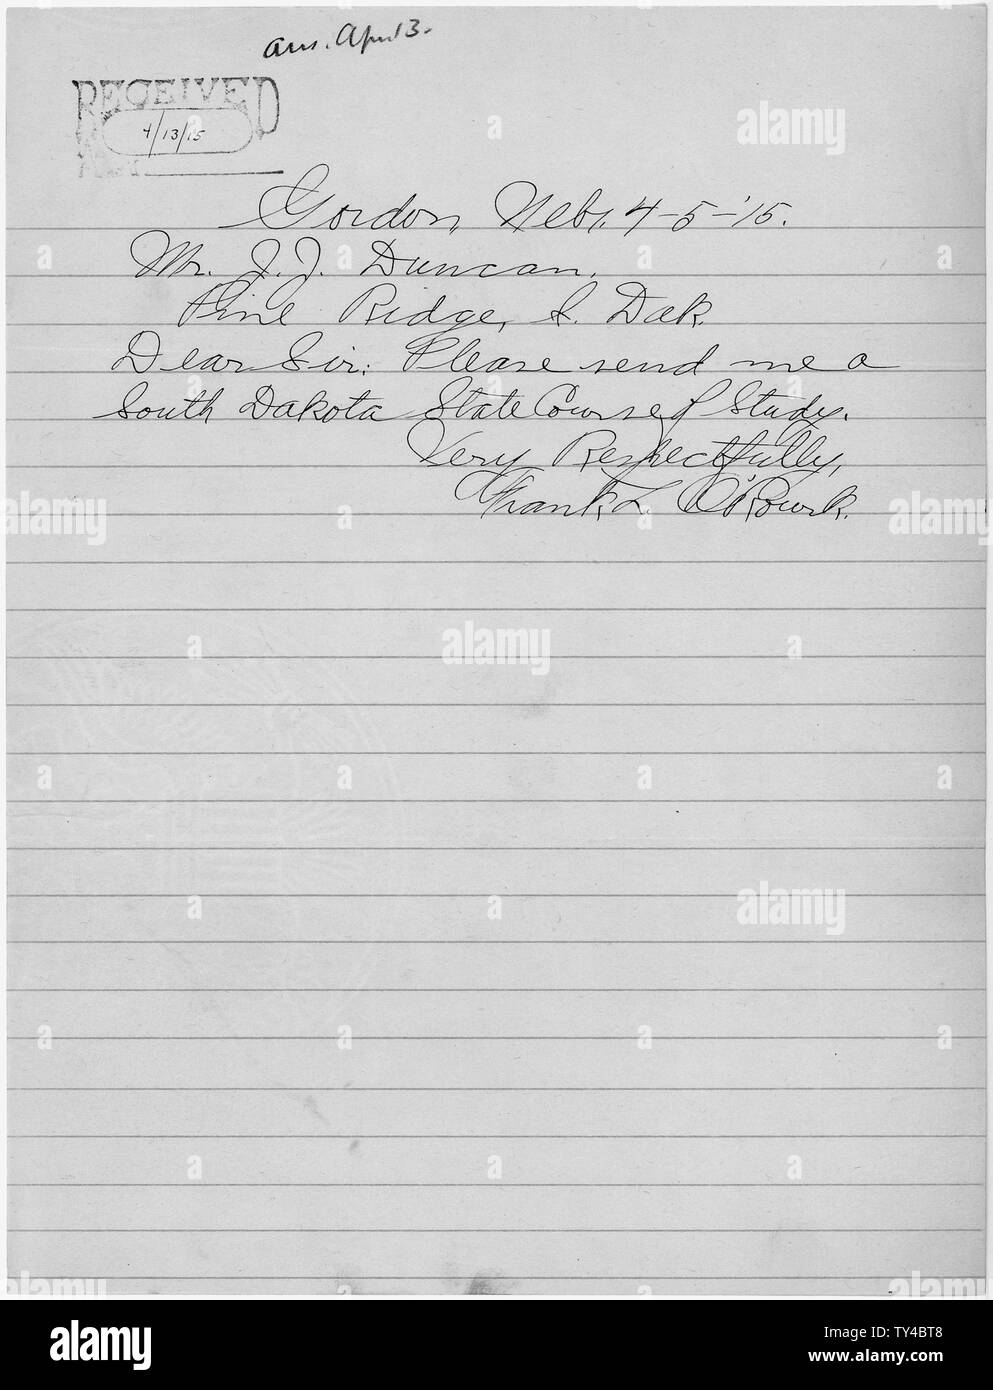 ans. April 3.
RECEIVED
4/13/15
Gordon, Nebr. 4-5-'15.
Mr. J. J. Duncan.
Pine Ridge, S. Dak.
Dear Sir: Please send me a
South Dakota State Course of Study.
Very Respectfully,
Frank L. O'Rourk.
alamy
Image ID: TY4BT8
www.alamy.com